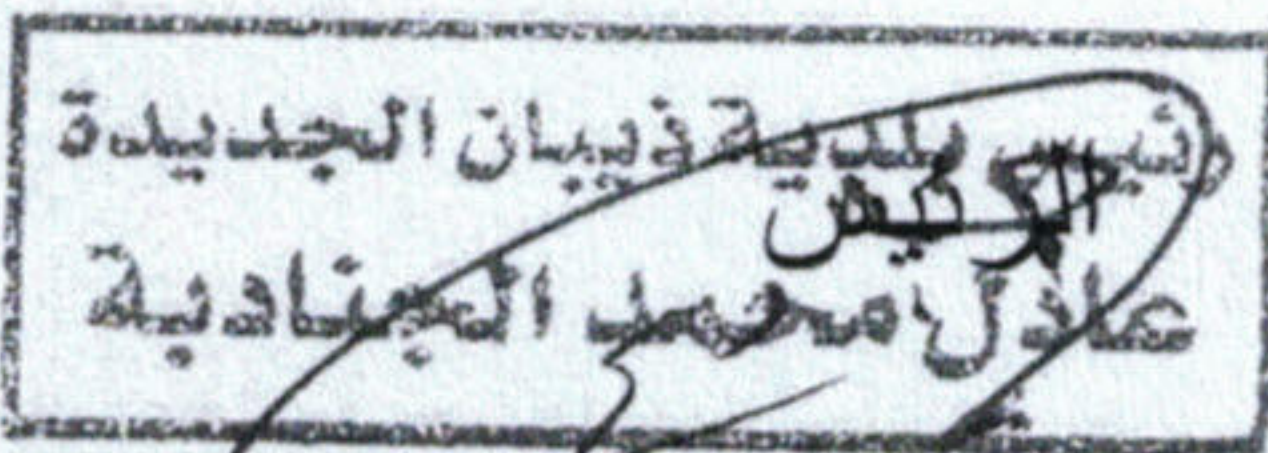 رئيس بلدية ذيبان الجديدة
الرئيس
عادل محمد الجنادبة